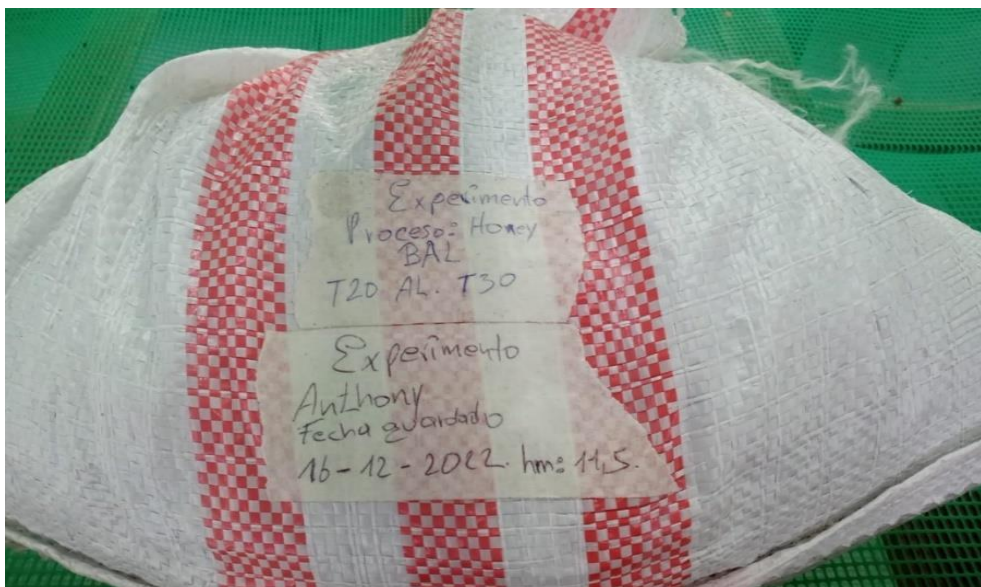 Experimento
Proceso: Honey
BAL
T20 AL. T30
Experimento
Anthony
Fecha guardado
16-12-2022. hm: 11,5.